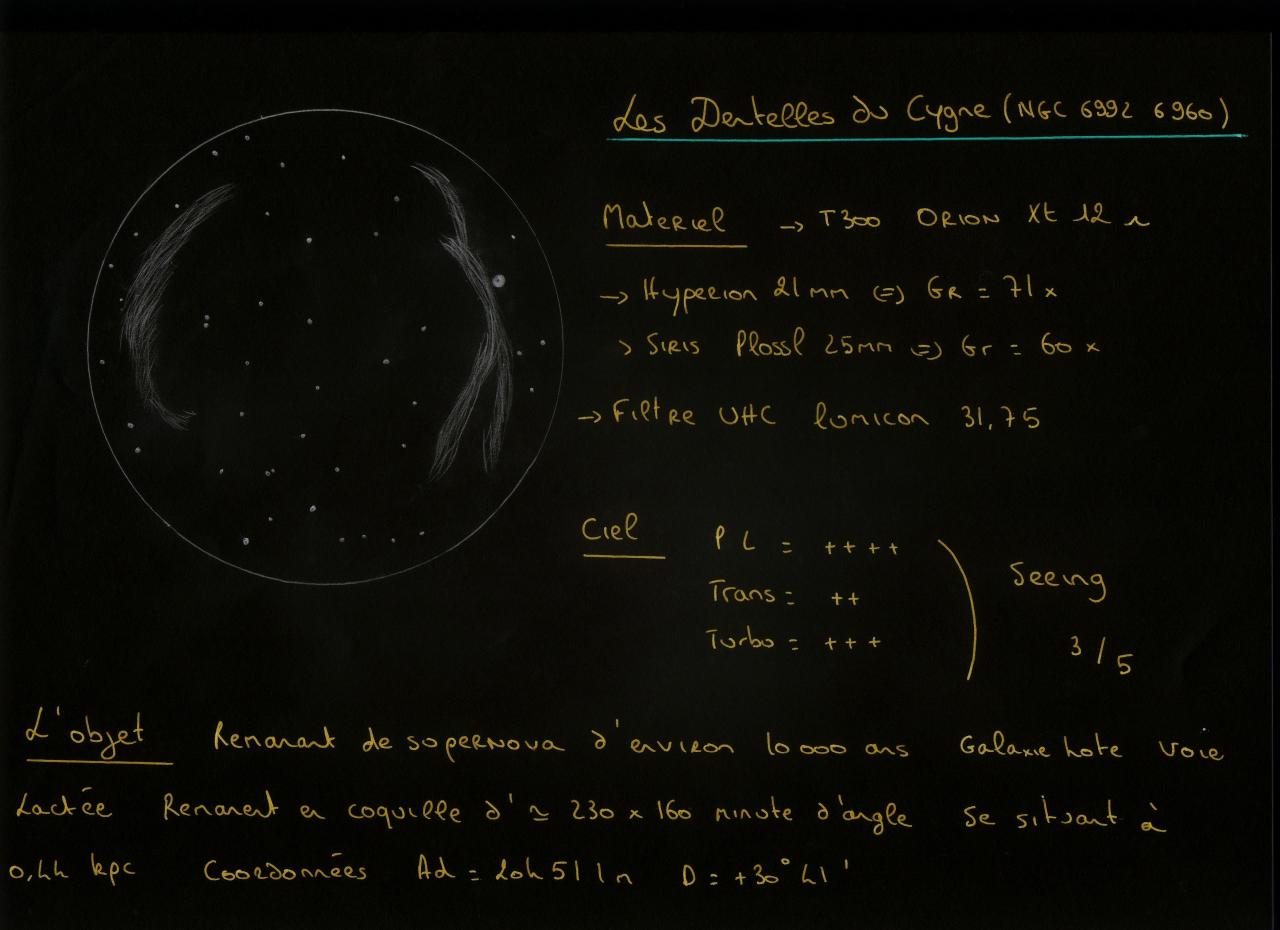 Les Dentelles du Cygne (NGC 6992 6960)
Materiel → T300 ORION Xt 12 i
→ Hyperion 21mm ⇔ GR = 71 x
> SIRIS Plossl 25mm ⇒ Gr = 60 x
→ Filtre UHC lumicon 31,75
Ciel P L = ++++
Trans = ++
Turbu = +++
Seeing
3/5
L'objet Remanant de supernova d'environ 10 000 ans Galaxie hote Voie
Lactée Remanent en coquille d' ≃ 230 x 160 minute d'angle se situant à
0,44 kpc Coordonnées Ad = 20h 51 1m D = +30° 41'